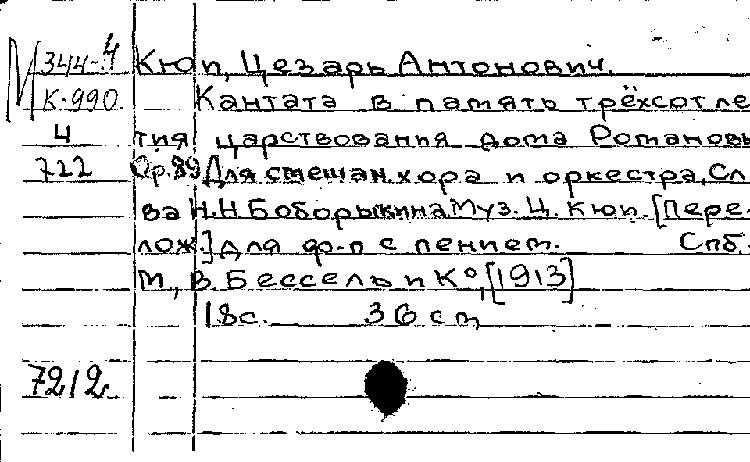 М 344-4 Кюи, Цезарь Антонович.
К-990. Кантата в память трёхсотле
4 тия царствования дома Романовы
722 Ор.89 Для смешан. хора и оркестра, Сл
ва Н.Н Боборыкина Муз. Ц. Кюи. [Пере-
лож.] для ф-п с пением. Спб.
М., В. Бессель и К°, [1913]
18с. 36 см
7212.